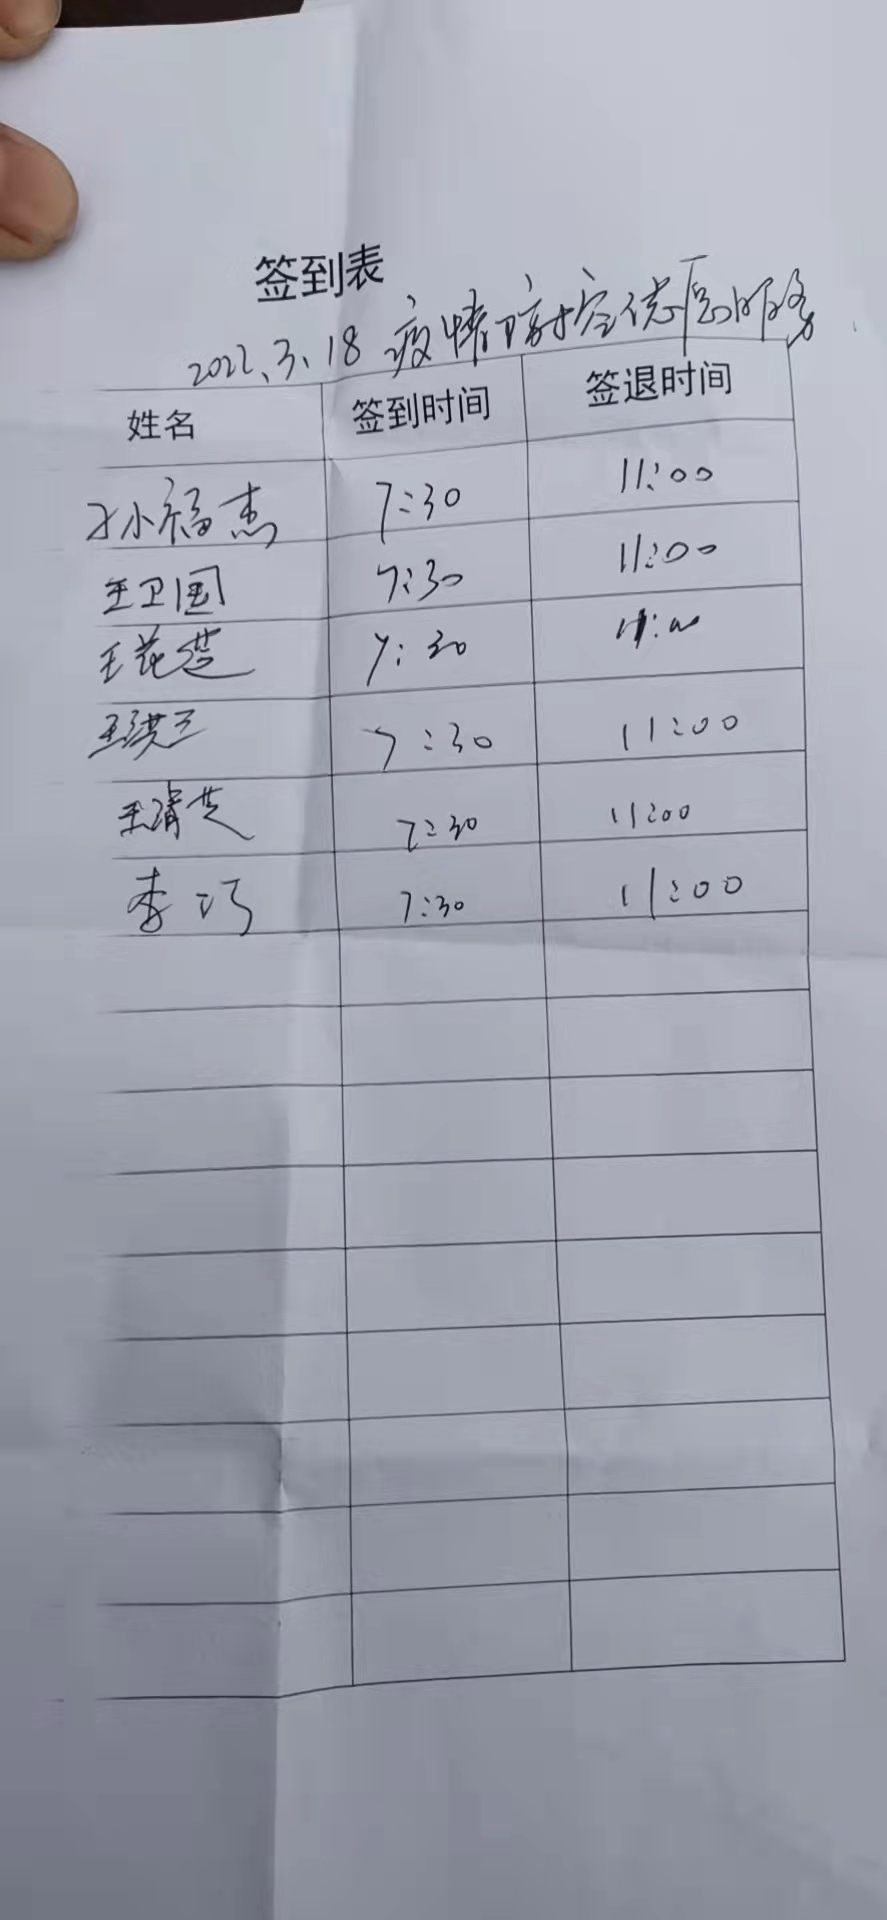 签到表
2022.3.18 疫情防控志愿服务
姓名 签到时间 签退时间
孙福杰 7:30 11:00
王卫国 7:30 11:00
王花莲 7:30 11:00
王洪兰 7:30 11:00
王清芝 7:30 11:00
李巧 7:30 11:00